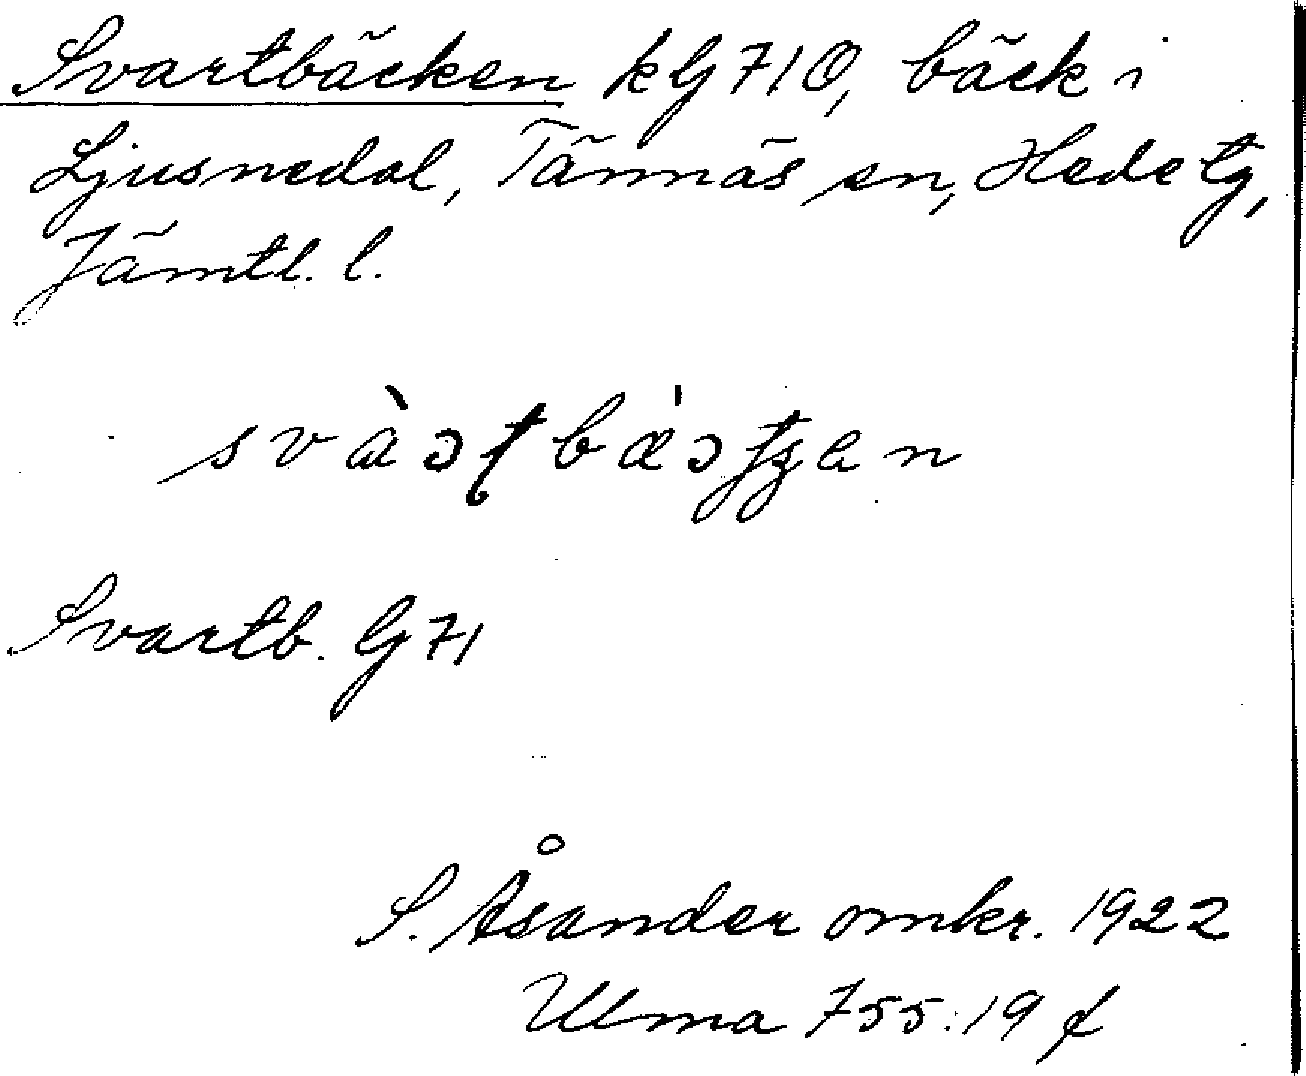 Svartbäcken kG 710, bäck i
Ljusnedal, Tännäs sn, Hede tg,
Jämtl. l.
Svartb. G 71
S. Åsander omkr. 1922
Ulma 755:19